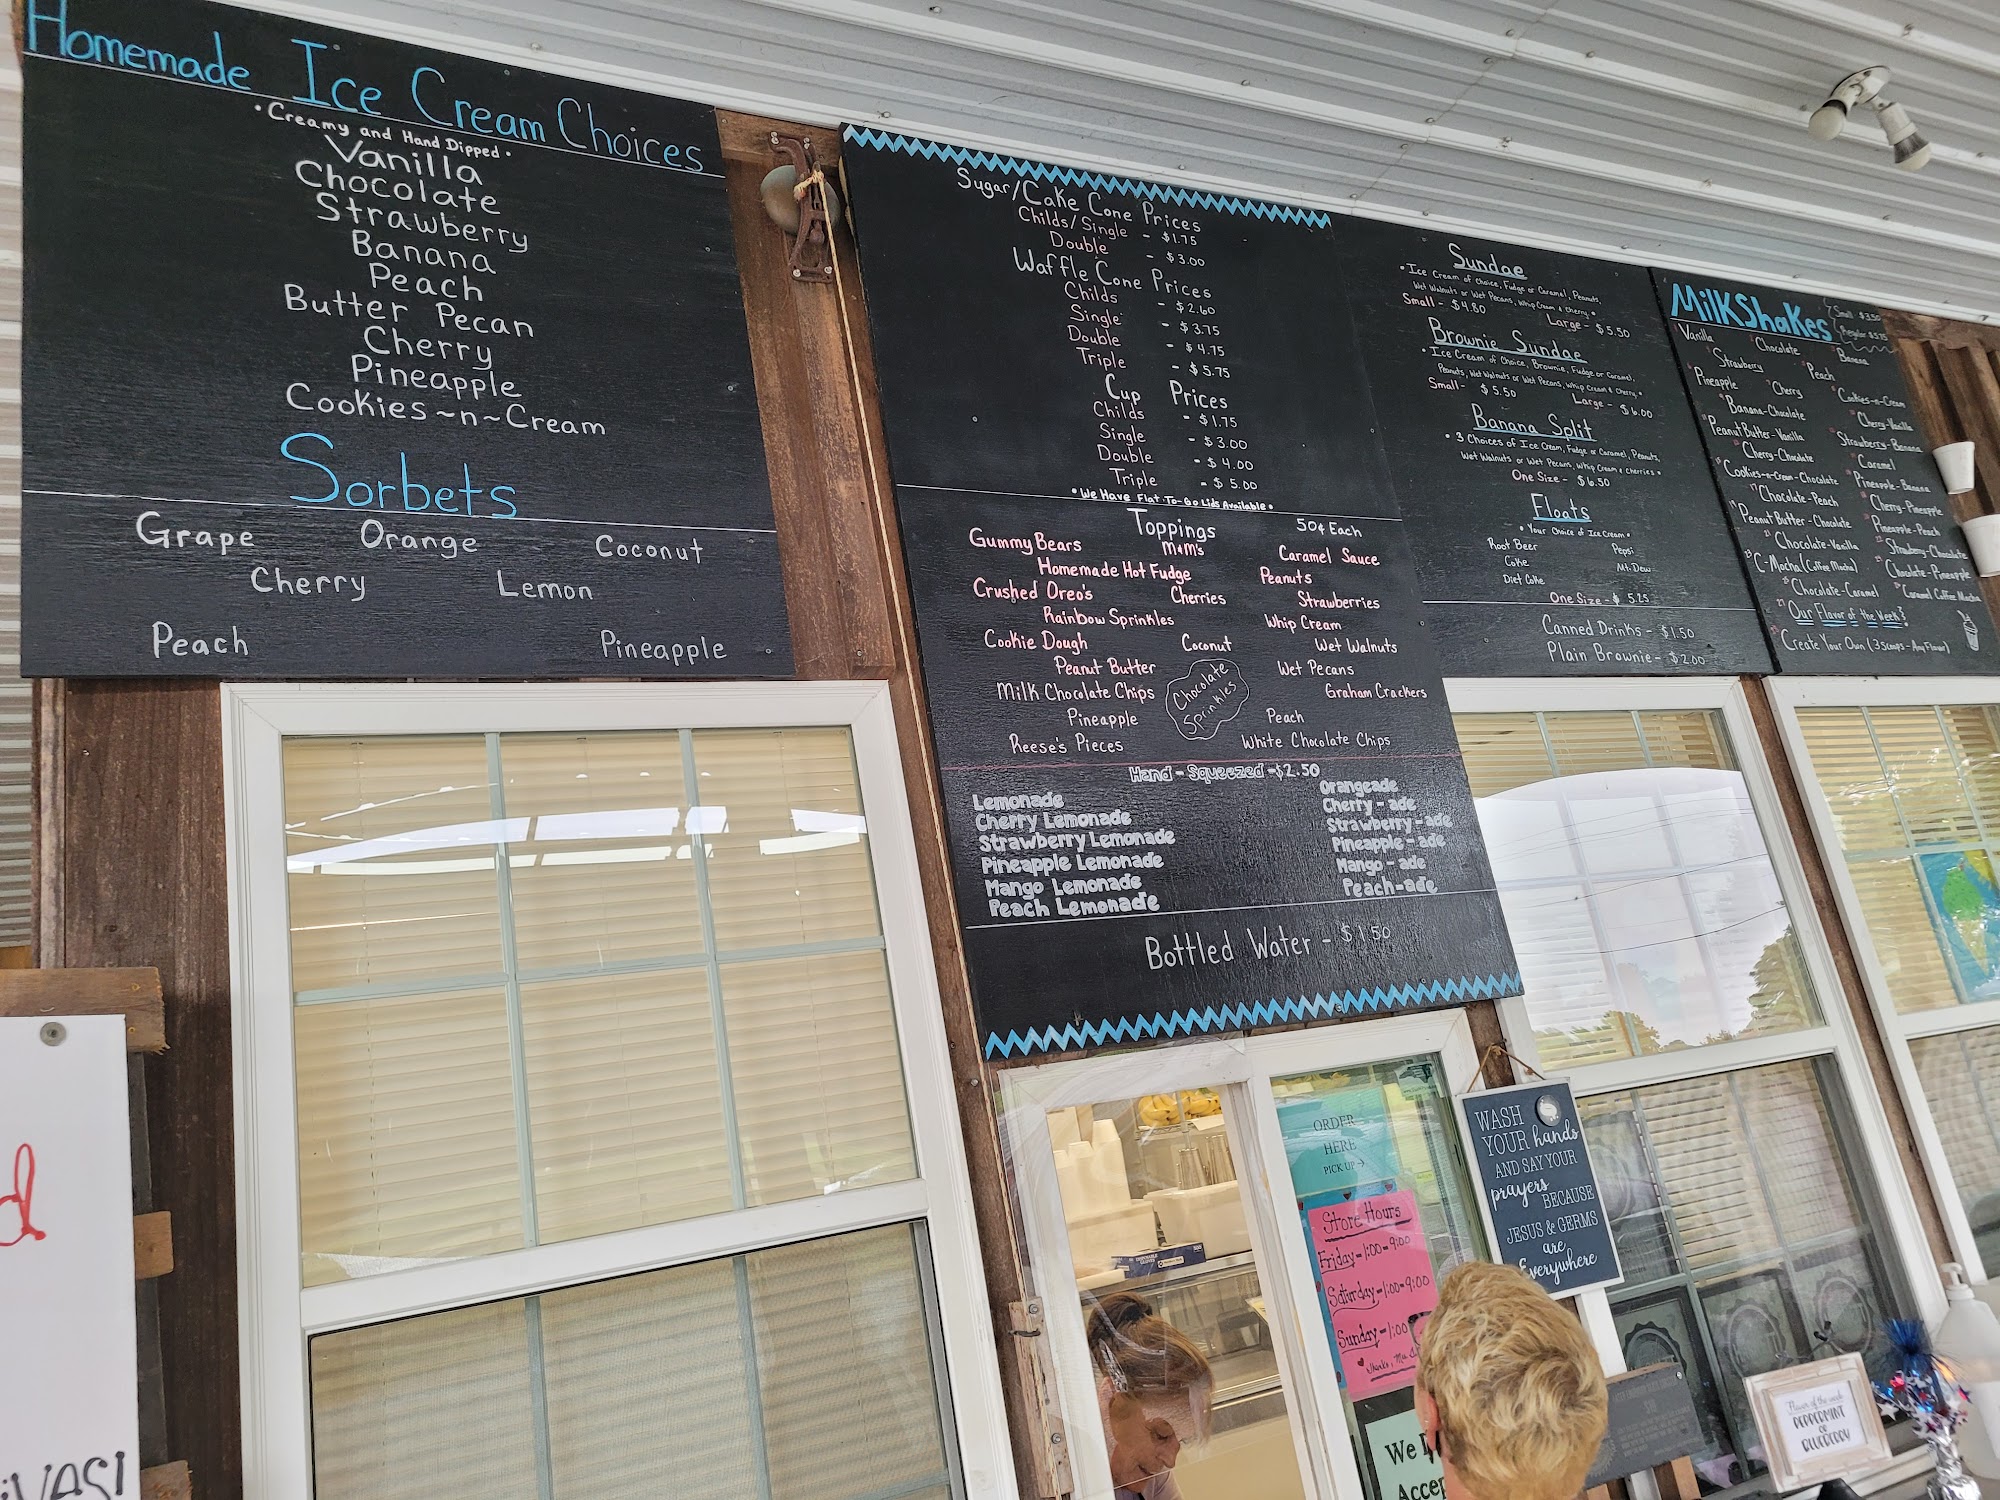 Homemade Ice Cream Choices
• Creamy and Hand Dipped •
Vanilla
Chocolate
Strawberry
Banana
Peach
Butter Pecan
Cherry
Pineapple
Cookies~n~Cream
Sorbets
Grape Orange Coconut
Cherry Lemon
Peach Pineapple
Sugar/Cake Cone Prices
Childs/Single - $1.75
Double - $3.00
Waffle Cone Prices
Childs - $2.60
Single - $3.75
Double - $4.75
Triple - $5.75
Cup Prices
Childs - $1.75
Single - $3.00
Double - $4.00
Triple - $5.00
• We Have Flat To-Go Lids Available •
Toppings 50¢ Each
Gummy Bears M&M's Caramel Sauce
Homemade Hot Fudge Peanuts
Crushed Oreo's Cherries Strawberries
Rainbow Sprinkles Whip Cream
Cookie Dough Coconut Wet Walnuts
Peanut Butter Wet Pecans
Milk Chocolate Chips Chocolate Sprinkles Graham Crackers
Pineapple Peach
Reese's Pieces White Chocolate Chips
Hand-Squeezed -$2.50
Lemonade Orangeade
Cherry Lemonade Cherry-ade
Strawberry Lemonade Strawberry-ade
Pineapple Lemonade Pineapple-ade
Mango Lemonade Mango-ade
Peach Lemonade Peach-ade
Bottled Water - $1.50
Sundae
• Ice Cream of Choice, Fudge or Caramel, Peanuts,
Wet Walnuts or Wet Pecans, Whip Cream & Cherry •
Small - $4.80 Large - $5.50
Brownie Sundae
• Ice Cream of Choice, Brownie, Fudge or Caramel,
Peanuts, Wet Walnuts or Wet Pecans, Whip Cream & Cherry •
Small - $5.50 Large - $6.00
Banana Split
• 3 Choices of Ice Cream, Fudge or Caramel, Peanuts,
Wet Walnuts or Wet Pecans, Whip Cream & Cherries •
One Size - $6.50
Floats
• Your Choice of Ice Cream •
Root Beer Pepsi
Coke Mt. Dew
Diet Coke
One Size - $5.25
Canned Drinks - $1.50
Plain Brownie - $2.00
MilkShakes
Small $3.50
Regular
Vanilla Chocolate Banana
Strawberry Peach
Pineapple Cherry Cookies-n-Cream
Banana-Chocolate Cherry-Vanilla
Peanut Butter-Vanilla Strawberry-Banana
Cherry-Chocolate Caramel
Cookies-n-Cream-Chocolate Pineapple-Banana
Chocolate-Peach Cherry-Pineapple
Peanut Butter-Chocolate Pineapple-Peach
Chocolate-Vanilla Strawberry-Chocolate
C-Mocha (Coffee Mocha) Chocolate-Pineapple
Chocolate-Caramel Caramel Coffee Mocha
Our Flavor of the Week
Create Your Own (3 Scoops - Any Flavor)
ORDER
HERE
PICK UP →
Store Hours
Friday-1:00-9:00
Saturday-1:00-9:00
Sunday-1:00
WASH
YOUR hands
AND SAY YOUR
prayers BECAUSE
JESUS & GERMS
are
Everywhere
We
Flavor of the week
PEPPERMINT
or
BLUEBERRY